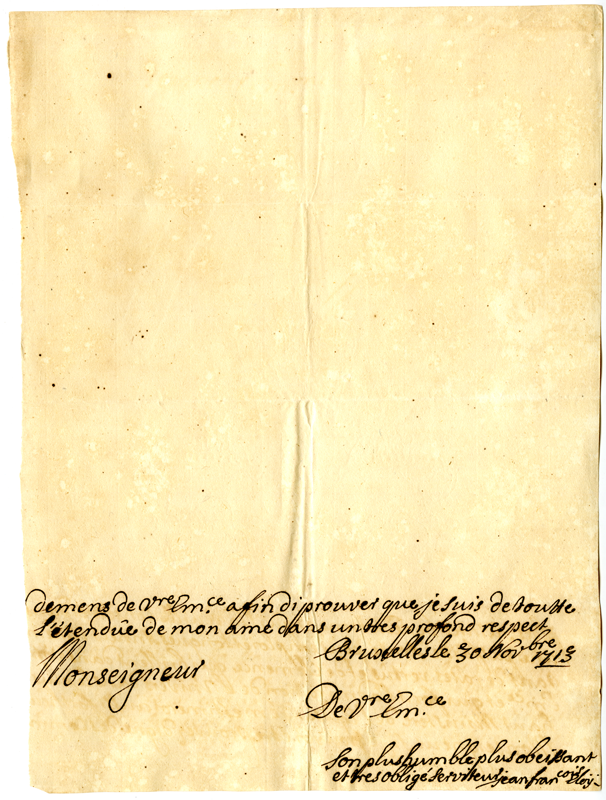 demens de vre Em.ce afin di prouver que je suis de toutte
l'étendüe de mon ame dans un tres profond respect
Bruxelles le 30 Novbre 1713
Monseigneur
De Vre Em.ce
Son plus humble plus obeissant
et tres obligé serviteur jean fran.cois